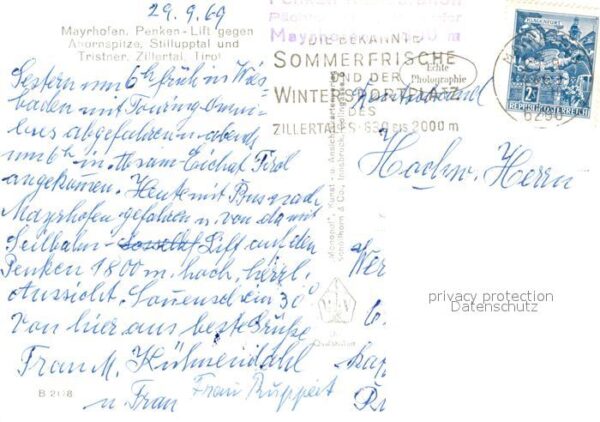 29.9.69
Mayrhofen. Penken-Lift gegen
Ahornspitze, Stilluptal und
Tristner, Zillertal, Tirol
Gestern um 6h früh in Wies
baden mit Touring-Omni-
bus abgefahren u. abends
um 6h in Tirol
angekommen. Heute mit Bus nach
Mayrhofen gefahren u. von da mit
Seilbahn - Lift auf den
Penken 1800 m. hoch, herrl.
Aussicht. Sonnenschein 30°
Von hier aus beste Grüße
Frau M. Kühmendahl
u Frau Frau Ruppert
B 2118
DIE BEKANNTE
SOMMERFRISCHE
UND DER
WINTERSPORTPLATZ
DES
ZILLERTALES · 630 bis 2000 m
Echte
Photographie
KLAGENFURT
2 S
REPUBLIK ÖSTERREICH
6290
Hochw. Herrn
privacy protection
Datenschutz